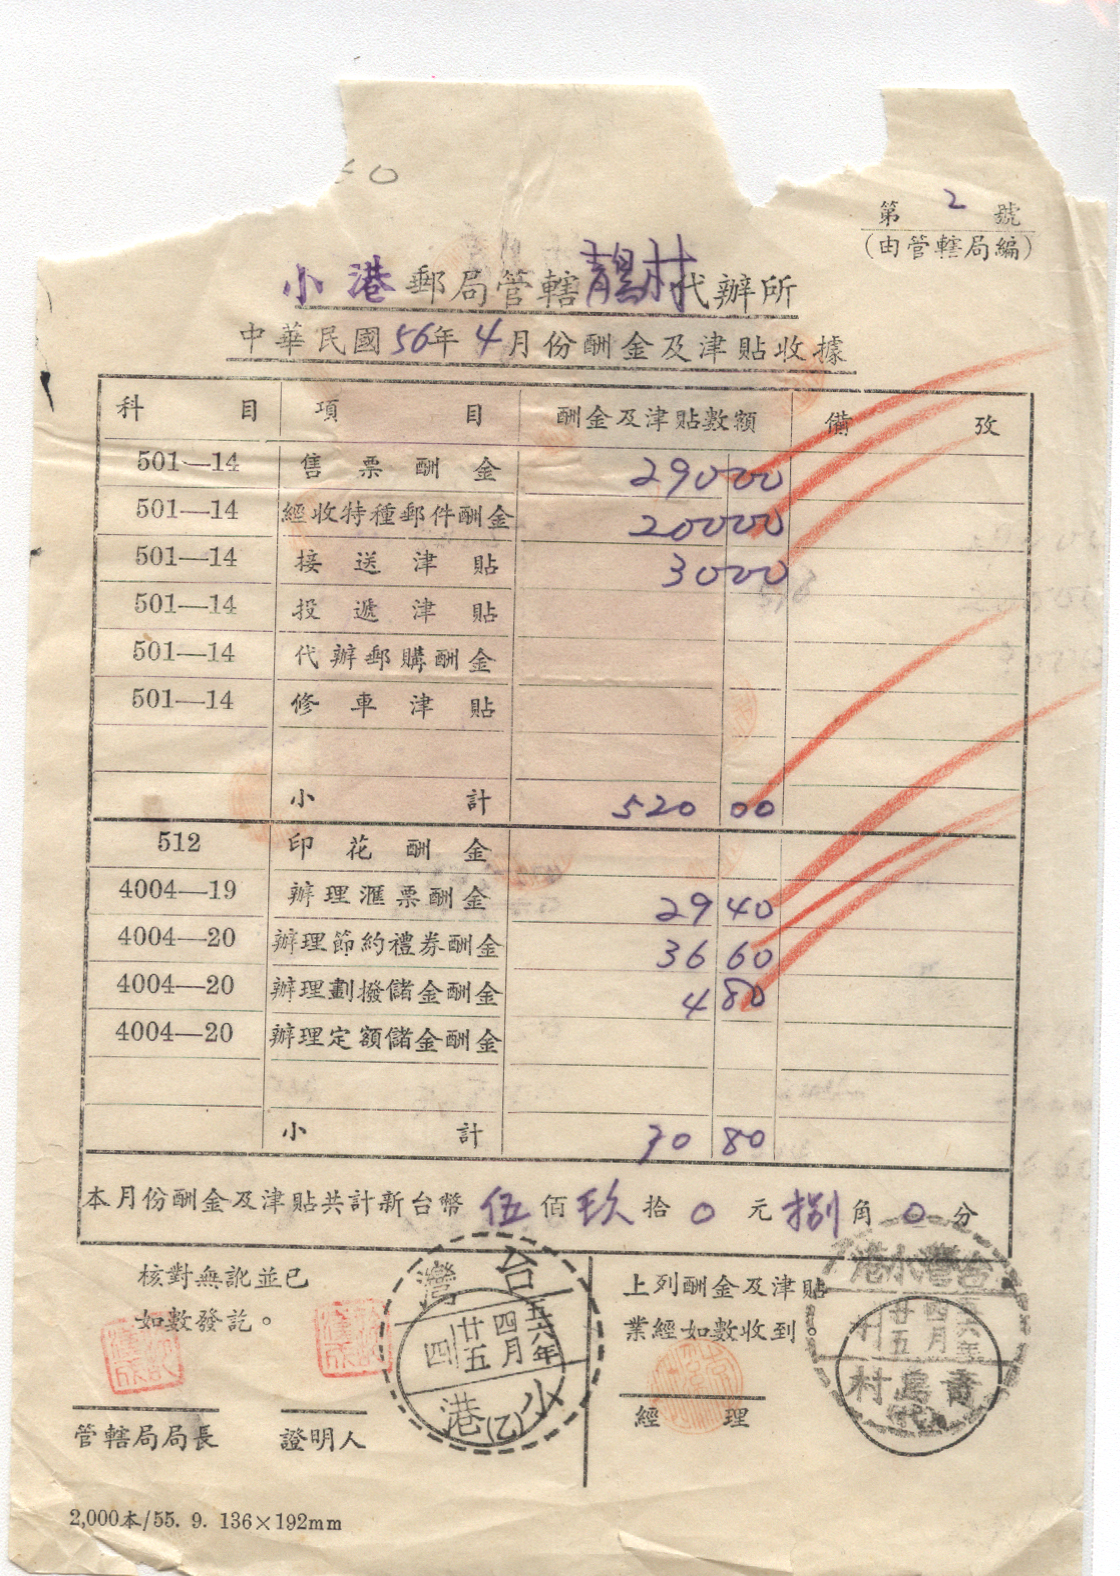 50
第 2 號
(由管轄局編)
小港郵局管轄青島村代辦所
中華民國56年4月份酬金及津貼收據
科目 項目 酬金及津貼數額 備攷
501—14 售票酬金 290 00
501—14 經收特種郵件酬金 200 00
501—14 接送津貼 30 00
501—14 投遞津貼
501—14 代辦郵購酬金
501—14 修車津貼
小計 520 00
512 印花酬金
4004—19 辦理滙票酬金 29 40
4004—20 辦理節約禮券酬金 36 60
4004—20 辦理劃撥儲金酬金 4 80
4004—20 辦理定額儲金酬金
小計 70 80
本月份酬金及津貼共計新台幣 伍 佰 玖 拾 0 元 捌 角 0 分
核對無訛並已
如數發訖。
上列酬金及津貼
業經如數收到。
管轄局局長 證明人
經理
台灣
五六年
四月
廿五
四
小港(乙)
台灣小港
五六年
四月
廿五
青島村
代
2,000本/55. 9. 136×192mm